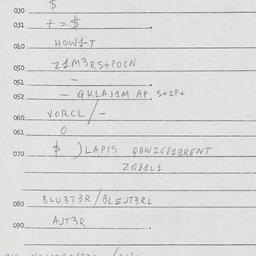 030 $
031 + = $
040 HOW1-T
050 Z1M3RS+POCN
051 -
052 - QKLAJ1M AP. S+1P+
060 VORCL/-
061 O
070 $ ) LAPIS QOWZG81BRENT
ZG81L1
080 BLU3T3R/BLEJT3RL
090 AJT3R